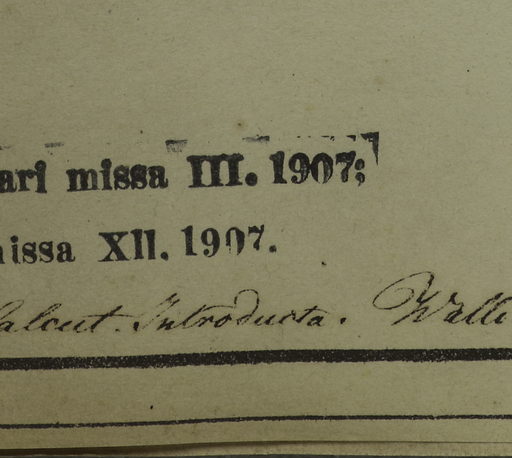 ari missa III. 1907;
issa XII. 1907.
alcut. Introducta. Walli